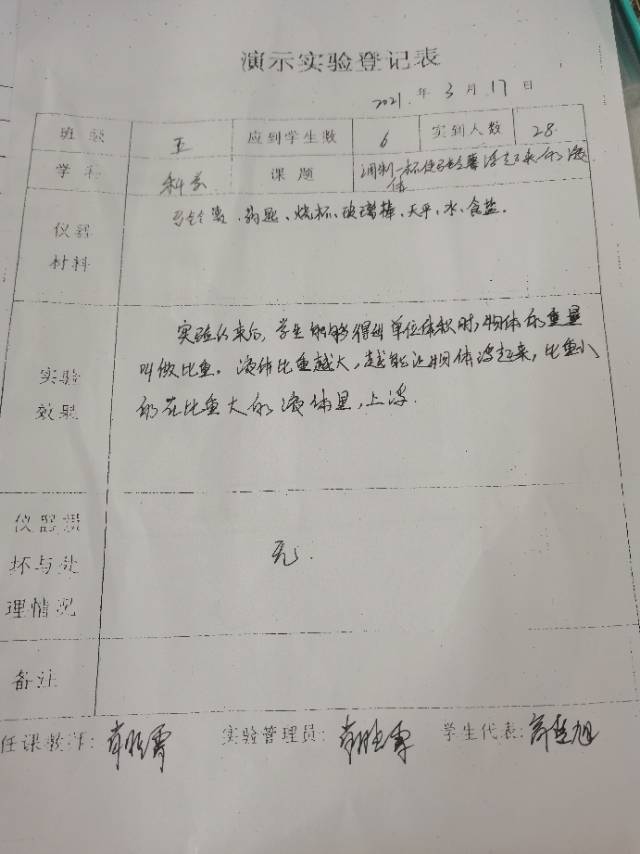 演示实验登记表
2021.年 3月 17日
班级 五 应到学生数 6 实到人数 28
学科 科学 课题 调制一杯使马铃薯浮起来的液体
仪器材料 马铃薯、药匙、烧杯、玻璃棒、天平、水、食盐.
实验效果
实验结束后,学生能够得到单位体积时,物体的重量
叫做比重. 液体比重越大,越能让物体浮起来,比重小
的在比重大的液体里,上浮.
仪器损坏与处理情况
无.
备注
任课教师: 实验管理员: 学生代表: